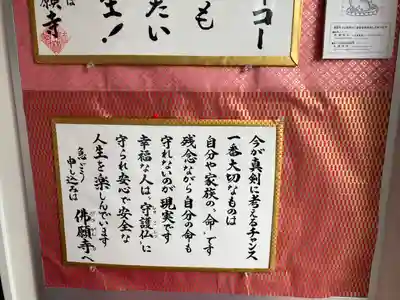 コー
も
たい
生！
は
願寺
今が真剣に考えるチャンス
一番大切なものは
自分や家族の、命、です
残念ながら自分の命も
守れないのが現実です
幸福な人は、守護仏、に
守られ安心で安全な
人生を楽しんでいます
急ごう
申し込みは
佛願寺へ